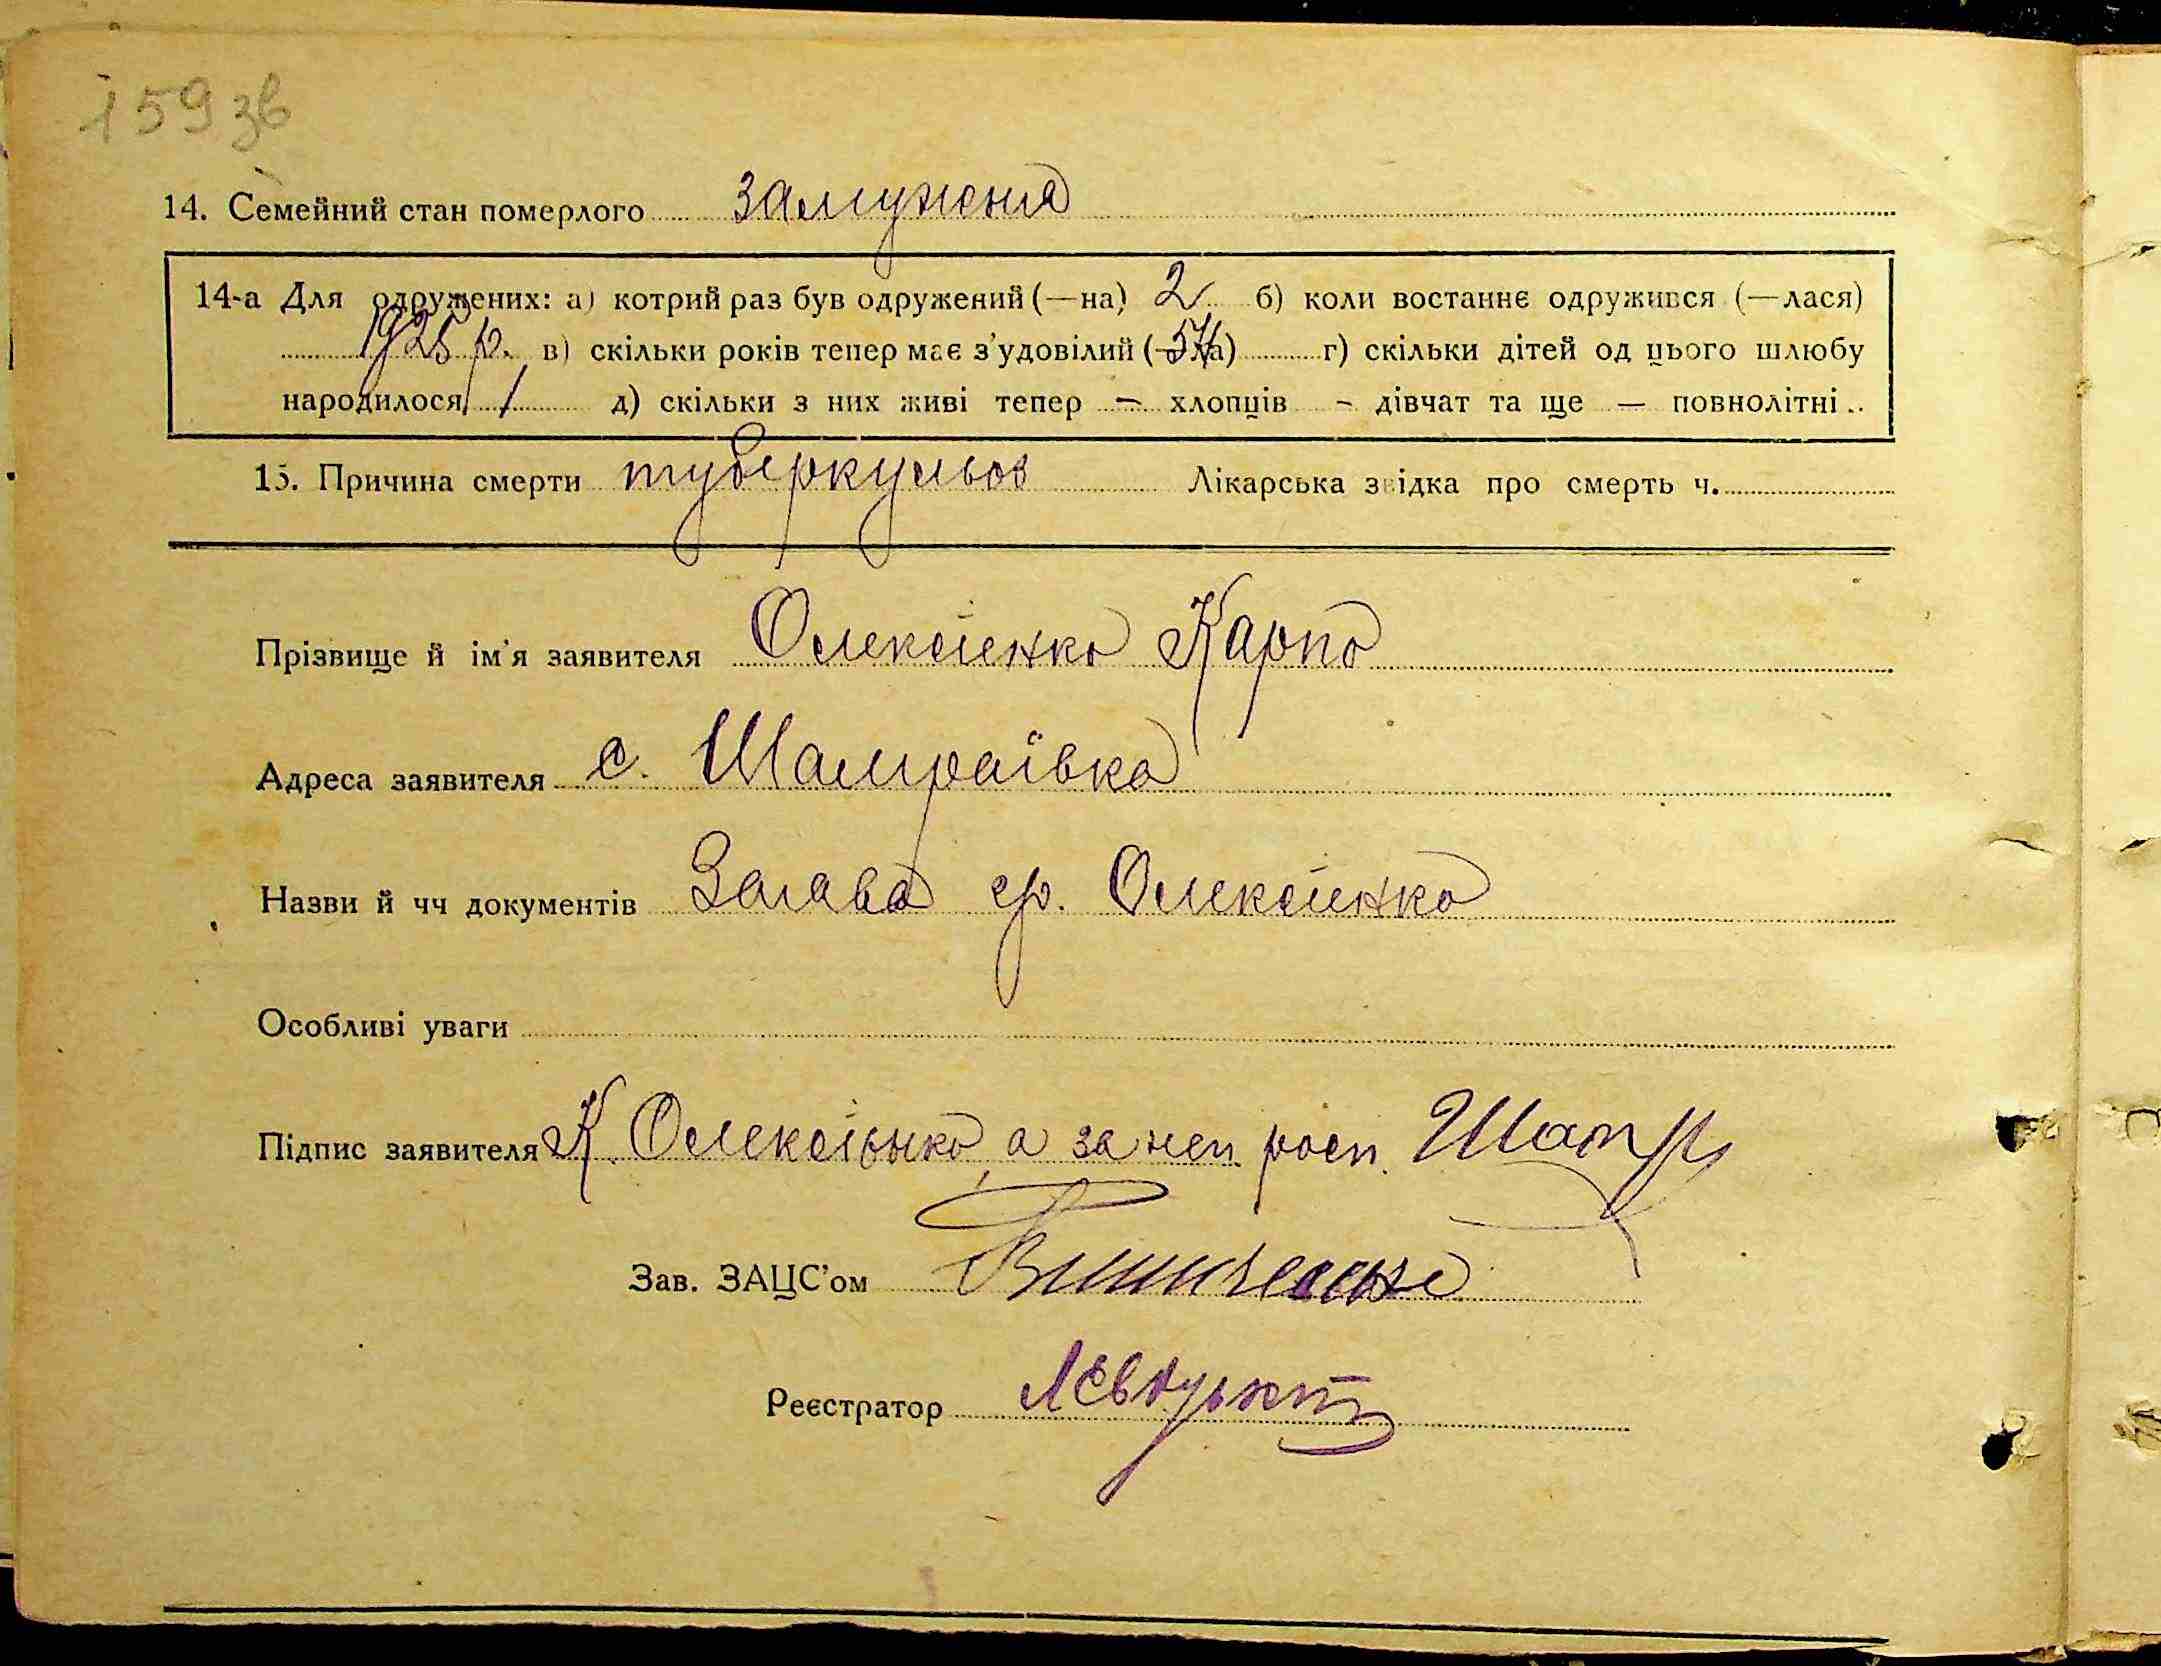 159 зв
14. Семейний стан померлого замужня
14-а Для одружених: а) котрий раз був одружений (—на) 2 б) коли востаннє одружився (—лася)
1925 р. в) скільки років тепер має з'удовілий (—ла) 54 г) скільки дітей од цього шлюбу
народилося 1 д) скільки з них живі тепер — хлопців - дівчат та ще — повнолітні..
15. Причина смерти туберкульоз Лікарська звідка про смерть ч.
Прізвище й ім'я заявителя Олексіенко Карпо
Адреса заявителя с. Шамраївка
Назви й чч документів Заява гр. Олексієнко
Особливі уваги
Підпис заявителя К. Олексієнко, а за неп. росп.
Зав. ЗАЦС'ом
Реєстратор